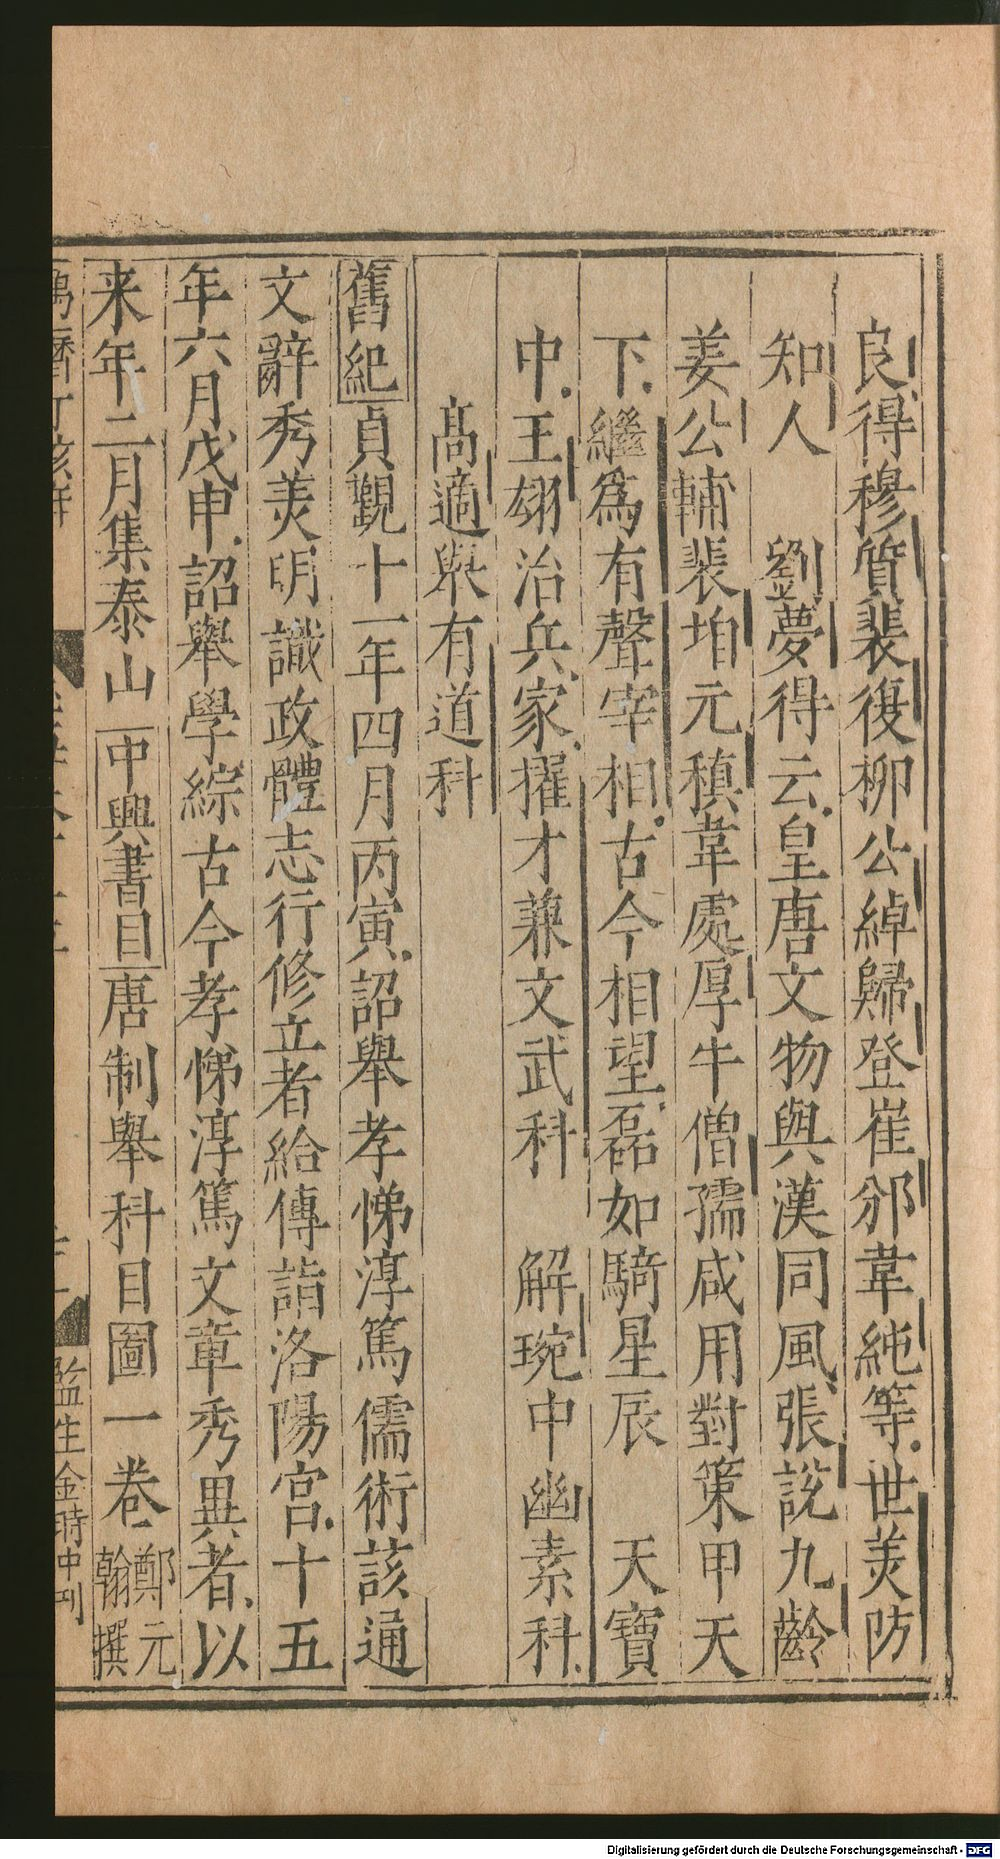 良得穆質裴復柳公綽歸登崔邠韋純等世美防
知人　劉夢得云皇唐文物與漢同風張說九齡
姜公輔裴垍元稹韋處厚牛僧孺咸用對策甲天
下繼爲有聲宰相古今相望磊如騎星辰　天寶
中王翃治兵家擢才兼文武科　解琬中幽素科
高適舉有道科
舊紀貞觀十一年四月丙寅詔舉孝悌淳篤儒術該通
文辭秀美明識政體志行修立者給傳詣洛陽宮十五
年六月戊申詔舉學綜古今孝悌淳篤文章秀異者以
来年二月集泰山中興書目唐制舉科目圖一卷鄭元
翰撰
監生金時中刊
Digitalisierung gefördert durch die Deutsche Forschungsgemeinschaft - DFG